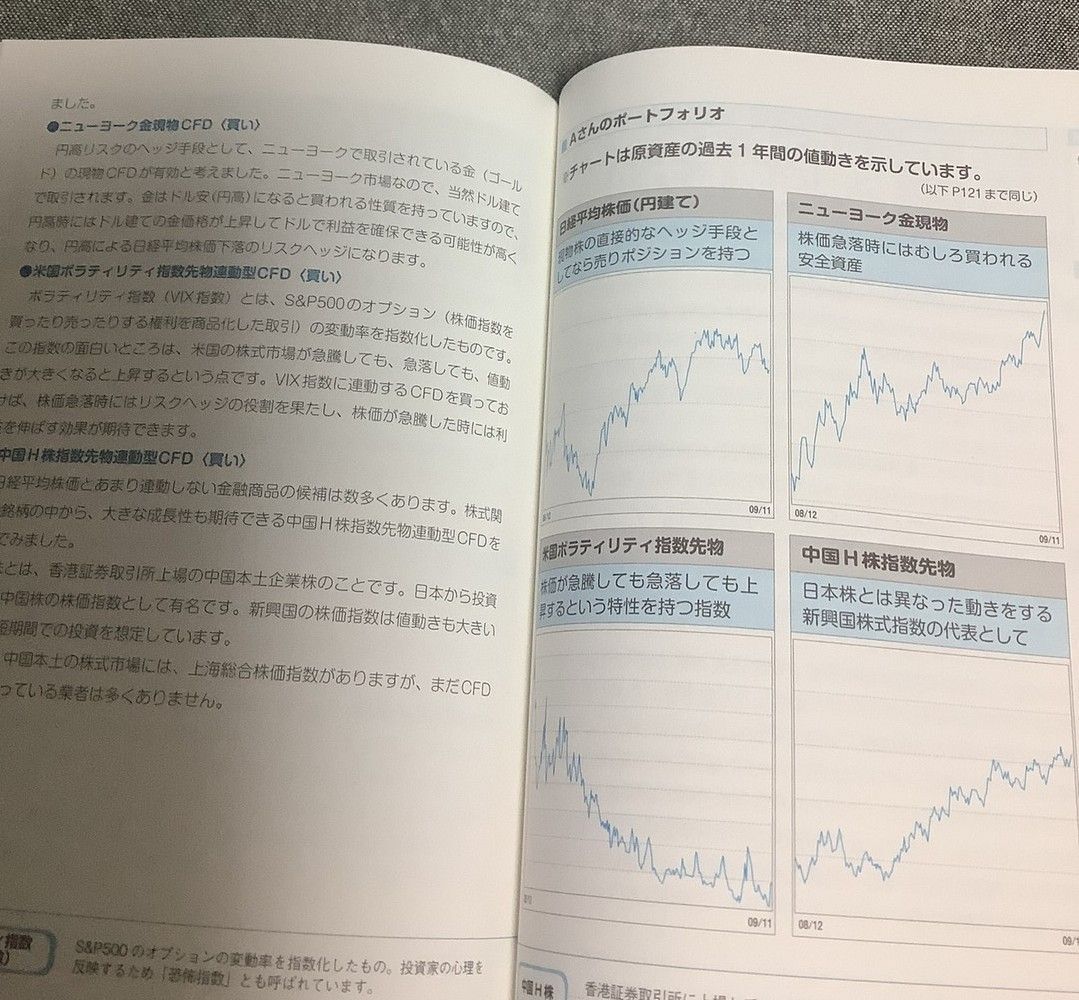 ました。
●ニューヨーク金現物CFD〈買い〉
円高リスクのヘッジ手段として、ニューヨークで取引されている金（ゴール
ド）の現物CFDが有効と考えました。ニューヨーク市場なので、当然ドル建て
で取引されます。金はドル安(円高)になると買われる性質を持っていますので、
円高時にはドル建ての金価格が上昇してドルで利益を確保できる可能性が高く
なり、円高による日経平均株価下落のリスクヘッジになります。
●米国ボラティリティ指数先物連動型CFD〈買い〉
ボラティリティ指数（VIX指数）とは、S&P500のオプション（株価指数を
買ったり売ったりする権利を商品化した取引）の変動率を指数化したものです。
この指数の面白いところは、米国の株式市場が急騰しても、急落しても、値動
きが大きくなると上昇するという点です。VIX指数に連動するCFDを買ってお
けば、株価急落時にはリスクヘッジの役割を果たし、株価が急騰した時には利
を伸ばす効果が期待できます。
中国H株指数先物連動型CFD〈買い〉
日経平均株価とあまり連動しない金融商品の候補は数多くあります。株式関
銘柄の中から、大きな成長性も期待できる中国H株指数先物連動型CFDを
でみました。
とは、香港証券取引所上場の中国本土企業株のことです。日本から投資
中国株の株価指数として有名です。新興国の株価指数は値動きも大きい
短期間での投資を想定しています。
中国本土の株式市場には、上海総合株価指数がありますが、まだCFD
っている業者は多くありません。
指数
S&P500のオプションの変動率を指数化したもの。投資家の心理を
反映するため「恐怖指数」とも呼ばれています。
Aさんのポートフォリオ
チャートは原資産の過去1年間の値動きを示しています。
（以下P121まで同じ）
日経平均株価(円建て)
現物株の直接的なヘッジ手段と
してなら売りポジションを持つ
09/11
ニューヨーク金現物
株価急落時にはむしろ買われる
安全資産
08/12
09/11
米国ボラティリティ指数先物
株価が急騰しても急落しても上
昇するという特性を持つ指数
09/11
中国H株指数先物
日本株とは異なった動きをする
新興国株式指数の代表として
08/12
中国H株